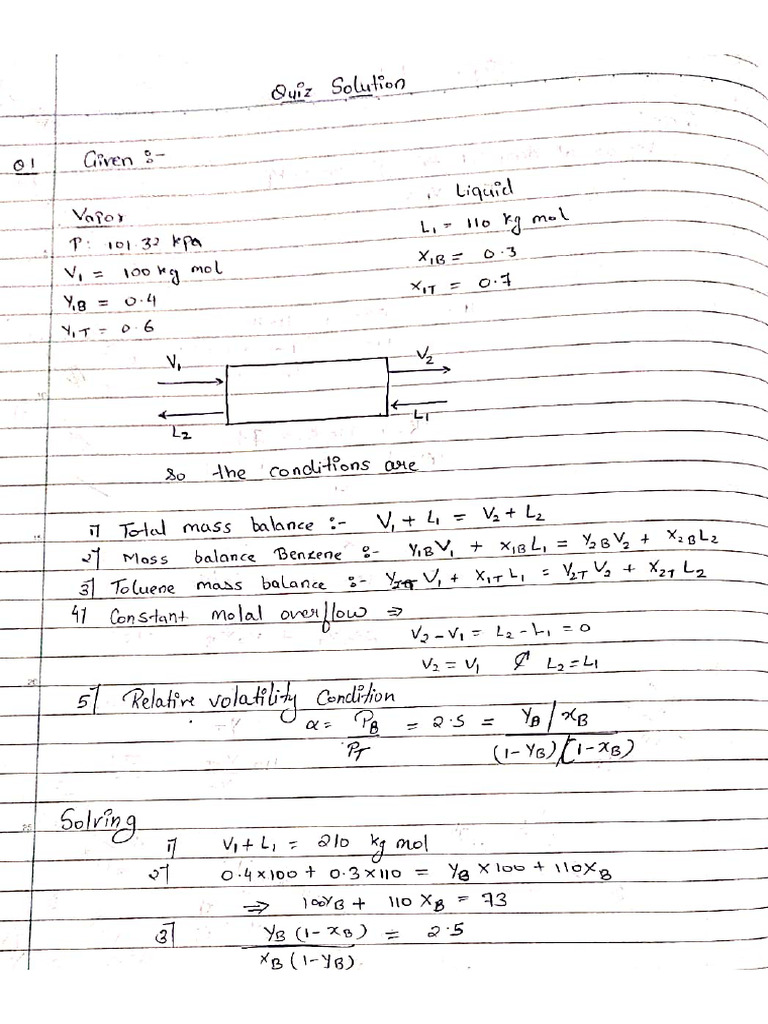 Quiz Solution
Q1 Given :-
Vapor
P: 101.32 kpa
V1 = 100 kg mol
Y1B = 0.4
Y1T = 0.6
Liquid
L1 = 110 kg mol
X1B = 0.3
X1T = 0.7
V1
V2
L2
L1
So the conditions are
1) Total mass balance :- V1 + L1 = V2 + L2
2) Mass balance Benzene :- Y1B V1 + X1B L1 = Y2B V2 + X2B L2
3) Toluene mass balance :- V1 + X1T L1 = Y2T V2 + X2T L2
4) Constant molal overflow ⇒
V2 - V1 = L2 - L1 = 0
V2 = V1 & L2 = L1
5) Relative volatility Condition
α = PB/PT = 2.5 = YB/XB / (1-YB)/(1-XB)
Solving
1) V1 + L1 = 210 kg mol
2) 0.4×100 + 0.3×110 = YB×100 + 110XB
⇒ 100YB + 110XB = 73
3) YB(1-XB) / XB(1-YB) = 2.5